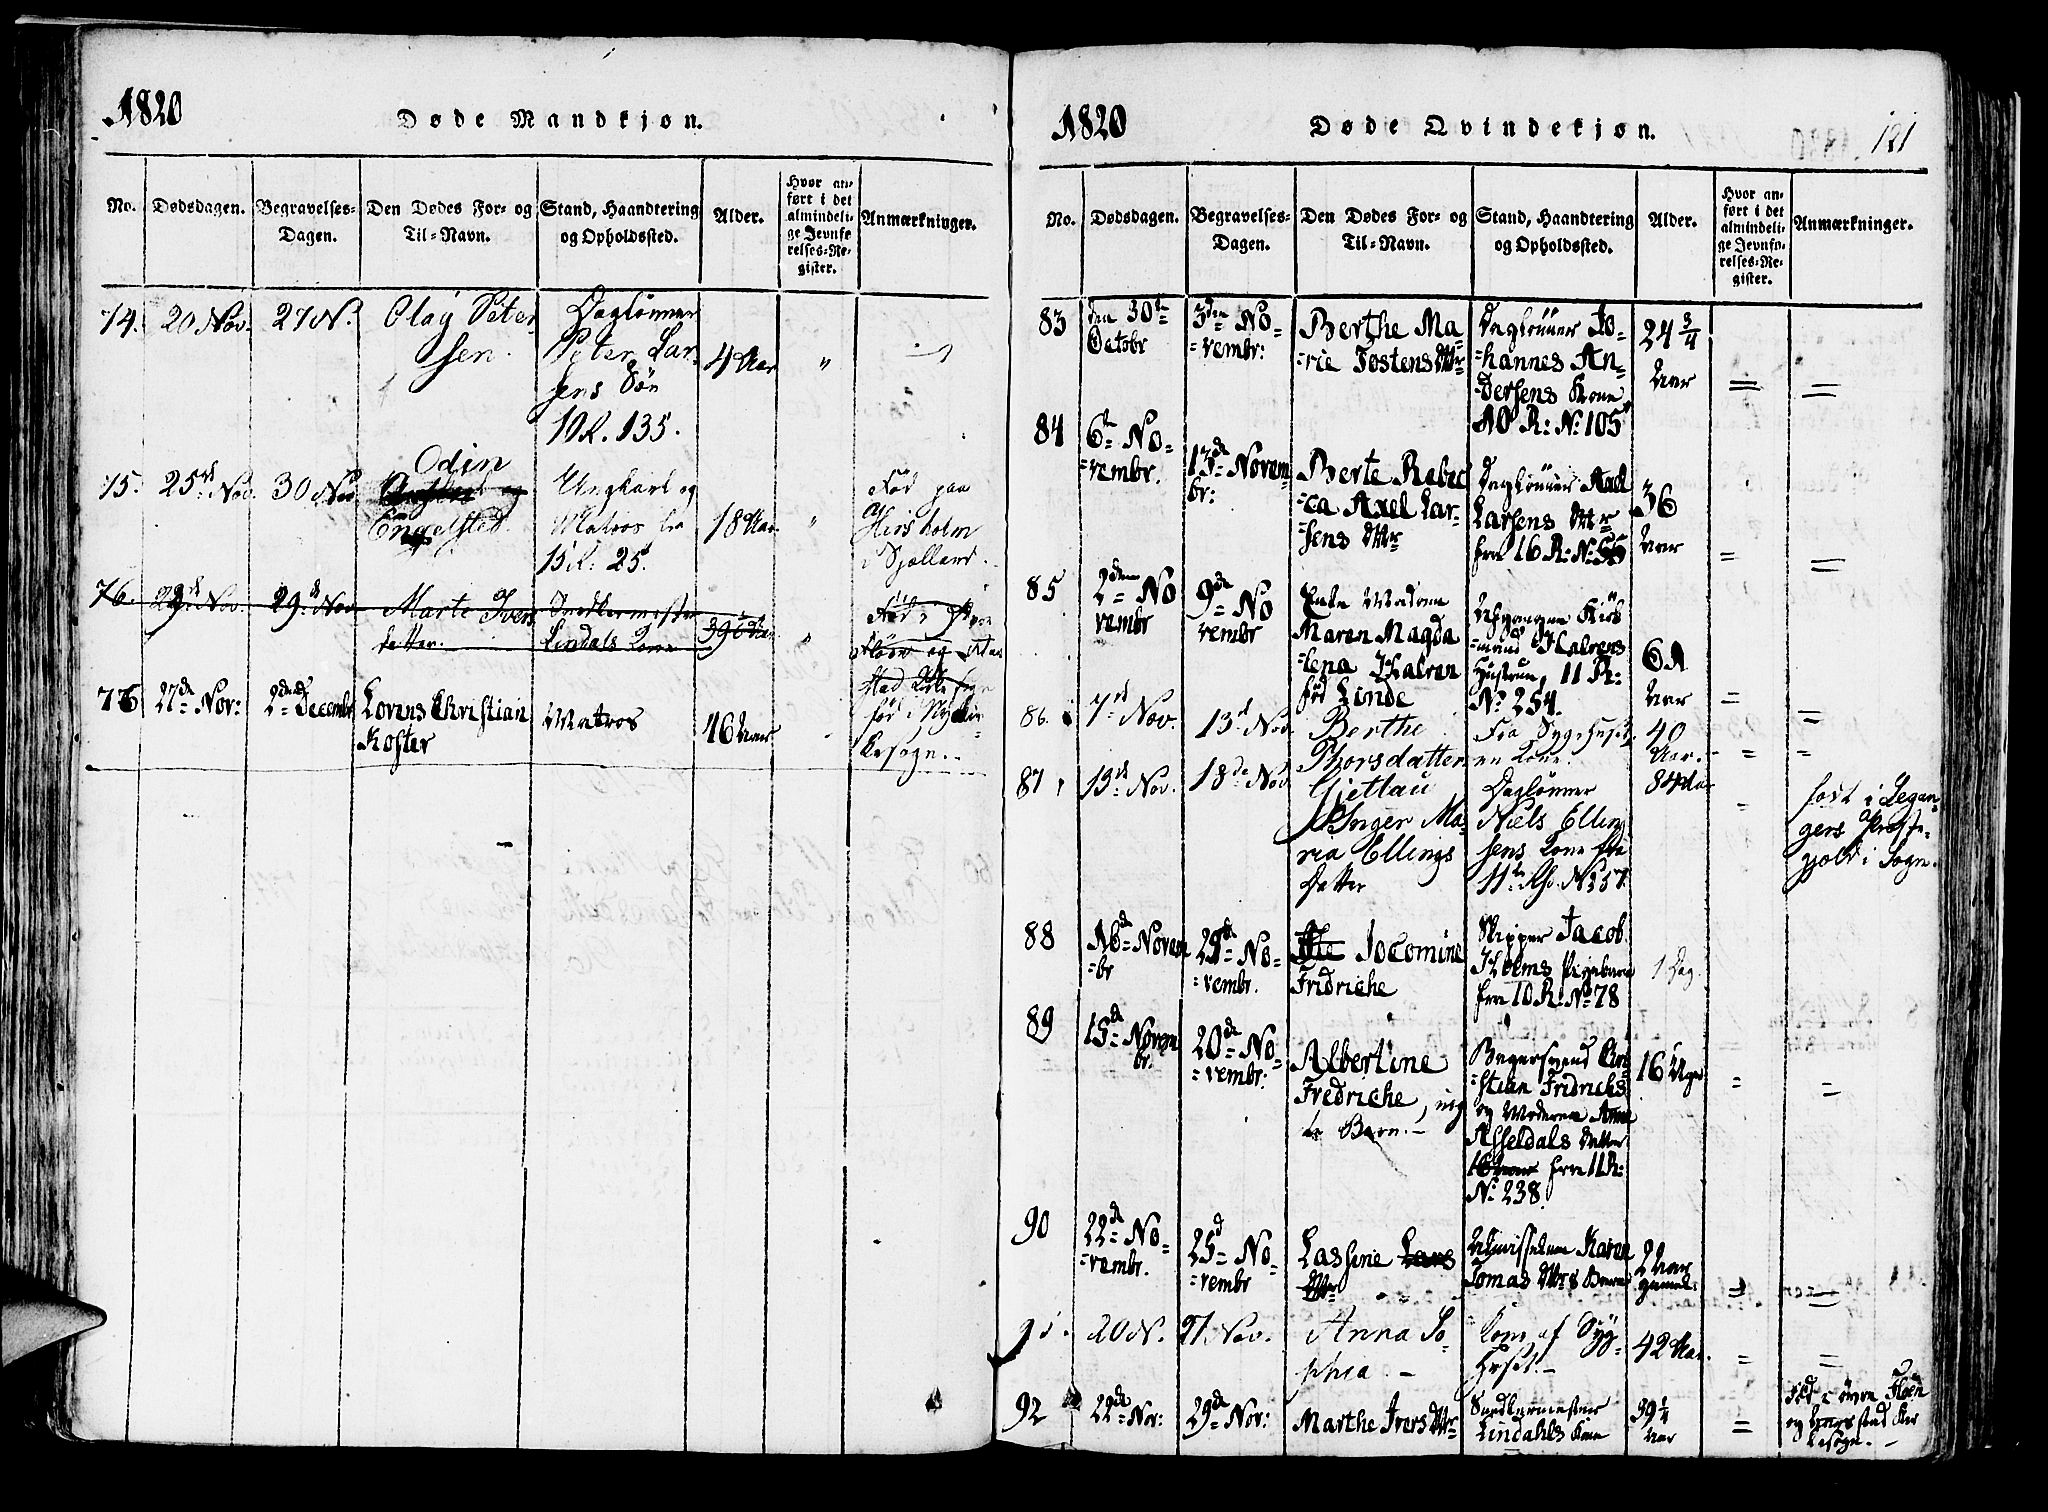 1820
Døde Mandkjøn.
No.
Dødsdagen.
Begravelses-
Dagen.
Den Dødes For- og
Til-Navn.
Stand, Haandtering
og Opholdssted.
Alder.
Hvor an-
ført i det
almindeli-
ge Jevnfø-
relses-Re-
gister.
Anmærkninger.
74.
20 Nov.
27 N.
Olay Peter
sen.
Daglønner
Peter Lar-
sens Søn
10 R. 135.
4 Aar
"
75.
25de Nov.
30 Nov
Odin
og
Engelsted.
Ungkarl og
Matros fra
15 R. 25.
18 Aar
"
Fød paa
Hirsholm
i Sjælland.
76.
29de Nov.
29.de Nov
Marte Ivers
datter.
Snedkermester
Lindals Kone
39 1/2 Aar
"
Fød i
og
76
27de Nov:
2den December
Lorens Christian
Koster
Matros
46 Aar
fød i
Kesogn.
1820
Døde Qvindekjøn.
121
No.
Dødsdagen.
Begravelses-
Dagen.
Den Dødes For- og
Til-Navn.
Stand, Haandtering
og Opholdssted.
Alder.
Hvor an-
ført i det
almindeli-
ge Jevnfø-
relses-Re-
gister.
Anmærkninger.
83
den 30te
Octobr
3den No-
=vembr:
Berthe Ma-
=rie Jostens Dtr
Daglønner Jo-
=hannes An-
=dersens Kone
10 R: No 105
24 3/4
Aar
84
6te No-
=vembr.
13de Novem
br:
Berte Rebec
=ca Axel Lar-
=sens Dtr
Daglønner Axel
Larsens Dtr
fra 16 R: No 55
36
Aar
85
2den No
vembr
9de No
vembr
Enke Madame
Maren Magda
=lena Halven
fød Linde
Afgangne Kirk
=mand Halvens
Hustrue, 11 R:
No 254.
60
Aar
86.
7de Nov.
13de Nov
Berthe
Thorsdatter
Fra Sygehuset
en Kone.
40
Aar.
87
13de Nov.
18de Nov
Gjetlau
Inger Ma-
ria Ellings
Datter
Dagløнner
Niels Elling
sens Kone fra
11te Rh. No 157
84 Aar
født i Legan-
gers Præste-
gjæld i Sogn.
88
16de Novem
=br
23de No-
=vembr.
Jocomine
Fridriche
Skipper Jacob
Hoems Pigebarn
fra 10 R: No 78
1 Dag.
89
15de Novem
br:
20de No-
=vembr:
Albertine
Fredriche, uæg
te Barn.
Bagersvend Chri
=stian Fridrichs
og Moderen Anne
Asseldals Datter
16 Uger fra 11 R:
No 238.
16 Uger
90
22de No-
=vembr.
25d No-
=vembr
Lassine Lars
Dtr
Afvisselsen Karen
Tomas Dtrs Barn
2 Aar
gammel
91.
20 N.
27 Nov.
Anna So
phia.
Kone af Syg
huset
42 Aar.
92
22de Nov:
29de Nov:
Marthe Ivers Dtr
Snedkermester
Lindahls Kone
39 1/2
Aar
Fød i øvre Floen
og Harestad Kir
kesogn.